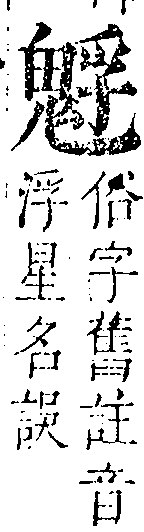 俗字舊註音
浮星名誤